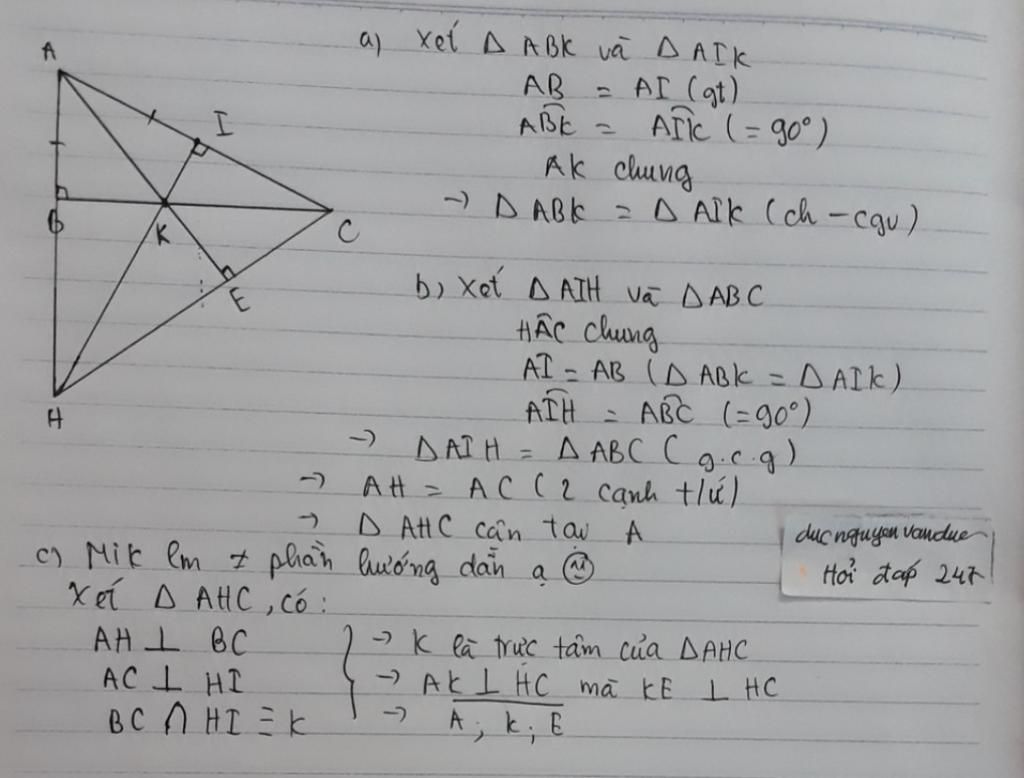 a) Xét Δ ABK và Δ AIK
AB = AI (gt)
ABK̂ = AIK̂ (= 90°)
AK chung
→ Δ ABK = Δ AIK (ch - cgv)
b) Xét Δ AIH và Δ ABC
HÂC chung
AI = AB (Δ ABK = Δ AIK)
AIĤ = ABĈ (= 90°)
→ Δ AIH = Δ ABC (g.c.g)
→ AH = AC (2 cạnh t/ứ)
→ Δ AHC cân tại A
c) Mik lm ≠ phần hướng dẫn ạ
Xét Δ AHC, có:
AH ⊥ BC
AC ⊥ HI
BC ∩ HI ≡ K
→ K là trực tâm của ΔAHC
→ AK ⊥ HC mà KE ⊥ HC
→ A; K; E
A
I
B
K
C
E
H
ducnguyenvanduc
Hỏi đáp 247